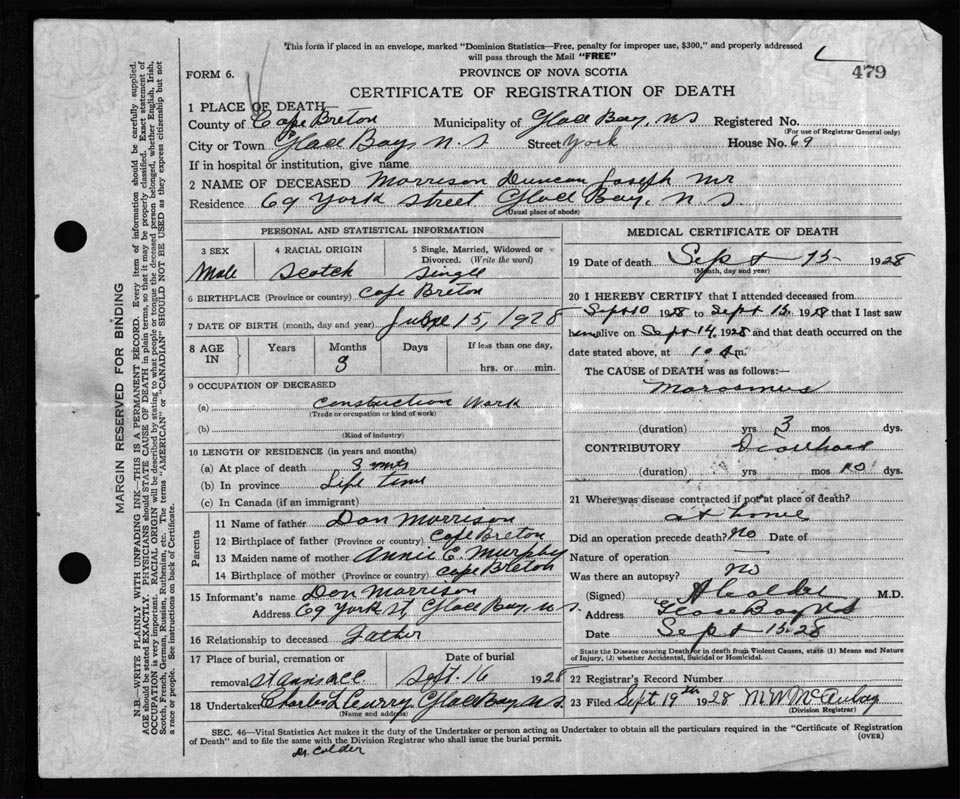 This form if placed in an envelope, marked "Dominion Statistics—Free, penalty for improper use, $300," and properly addressed
will pass through the Mail "FREE"
479
FORM 6.
PROVINCE OF NOVA SCOTIA
CERTIFICATE OF REGISTRATION OF DEATH
1 PLACE OF DEATH—
County of Cape Breton Municipality of Glace Bay, N S Registered No.
(For use of Registrar General only)
City or Town Glace Bay N. S Street York House No. 69
If in hospital or institution, give name
2 NAME OF DECEASED Morrison Duncan Joseph Mr
Residence 69 York Street Glace Bay, N. S
(Usual place of abode)
PERSONAL AND STATISTICAL INFORMATION
3 SEX 4 RACIAL ORIGIN 5 Single, Married, Widowed or Divorced. (Write the word)
Male Scotch Single
6 BIRTHPLACE (Province or country) Cape Breton
7 DATE OF BIRTH (month, day and year) 15, 1928
8 AGE IN Years Months Days If less than one day,
3 hrs. or min.
9 OCCUPATION OF DECEASED
(a) Construction Work
(Trade or occupation or kind of work)
(b)
(Kind of industry)
10 LENGTH OF RESIDENCE (in years and months)
(a) At place of death 3 mts
(b) In province Life Time
(c) In Canada (if an immigrant)
Parents
11 Name of father Dan Morrison
12 Birthplace of father (Province or country) Cape Breton
13 Maiden name of mother Annie C. Murphy
14 Birthplace of mother (Province or country) Cape Breton
15 Informant's name Dan Morrison
Address 69 York St, Glace Bay, N. S.
16 Relationship to deceased Father
17 Place of burial, cremation or Date of burial
removal St Anns Sept. 16 1928
18 Undertaker Charles L Curry Glace Bay N. S.
(Name and address)
MEDICAL CERTIFICATE OF DEATH
19 Date of death Sept 15 1928
(Month, day and year)
20 I HEREBY CERTIFY that I attended deceased from
Sept 10 1928 to Sept 15 1928 that I last saw
him alive on Sept 14, 1928 and that death occurred on the
date stated above, at 10 m.
The CAUSE of DEATH was as follows:—
Marasmus
(duration) yrs 3 mos dys.
CONTRIBUTORY Diarrhoea
(duration) yrs. mos 10 dys.
21 Where was disease contracted if not at place of death?
at home
Did an operation precede death? No Date of
Nature of operation
Was there an autopsy? No
(Signed) A Calder M.D.
Address Glace Bay NS
Date Sept 15-28
State the Disease causing Death, or in death from Violent Causes, state (1) Means and Nature
of Injury, (2) whether Accidental, Suicidal or Homicidal.
22 Registrar's Record Number
23 Filed Sept 19th 1928 M W McAulay
(Division Registrar)
SEC. 46—Vital Statistics Act makes it the duty of the Undertaker or person acting as Undertaker to obtain all the particulars required in the "Certificate of Registration
of Death" and to file the same with the Division Registrar who shall issue the burial permit.
(OVER)
Dr Calder
MARGIN RESERVED FOR BINDING
N.B.—WRITE PLAINLY WITH UNFADING INK—THIS IS A PERMANENT RECORD. Every item of information should be carefully supplied.
AGE should be stated EXACTLY. PHYSICIANS should STATE CAUSE OF DEATH in plain terms, so that it may be properly classified. Exact statement of
OCCUPATION is very important. RACIAL ORIGIN will be described by stating to what people or tongue the deceased person belonged, whether English, Irish,
Scotch, French, German, Russian, Ruthenian, etc. The terms "AMERICAN" or "CANADIAN" SHOULD NOT BE USED as they express citizenship but not
a race or people. See instructions on back of Certificate.